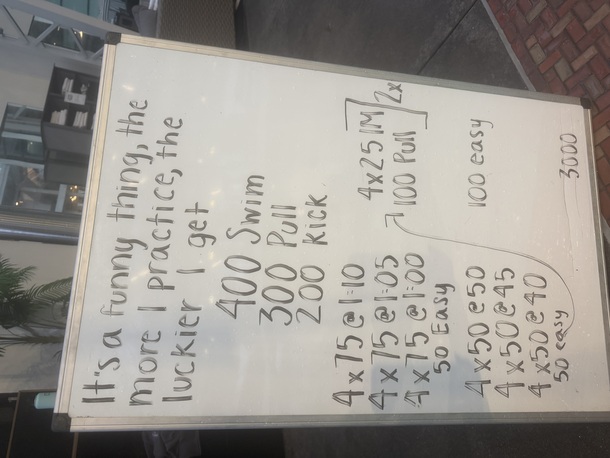 It's a funny thing, the
more I practice, the
luckier I get
400 Swim
300 Pull
200 kick
4x75@1:10
4x75@1:05
4x75@1:00
50 Easy
4x50@50
4x50@45
4x50@40
50 easy
4x25 IM
100 Pull
2x
100 easy
3000